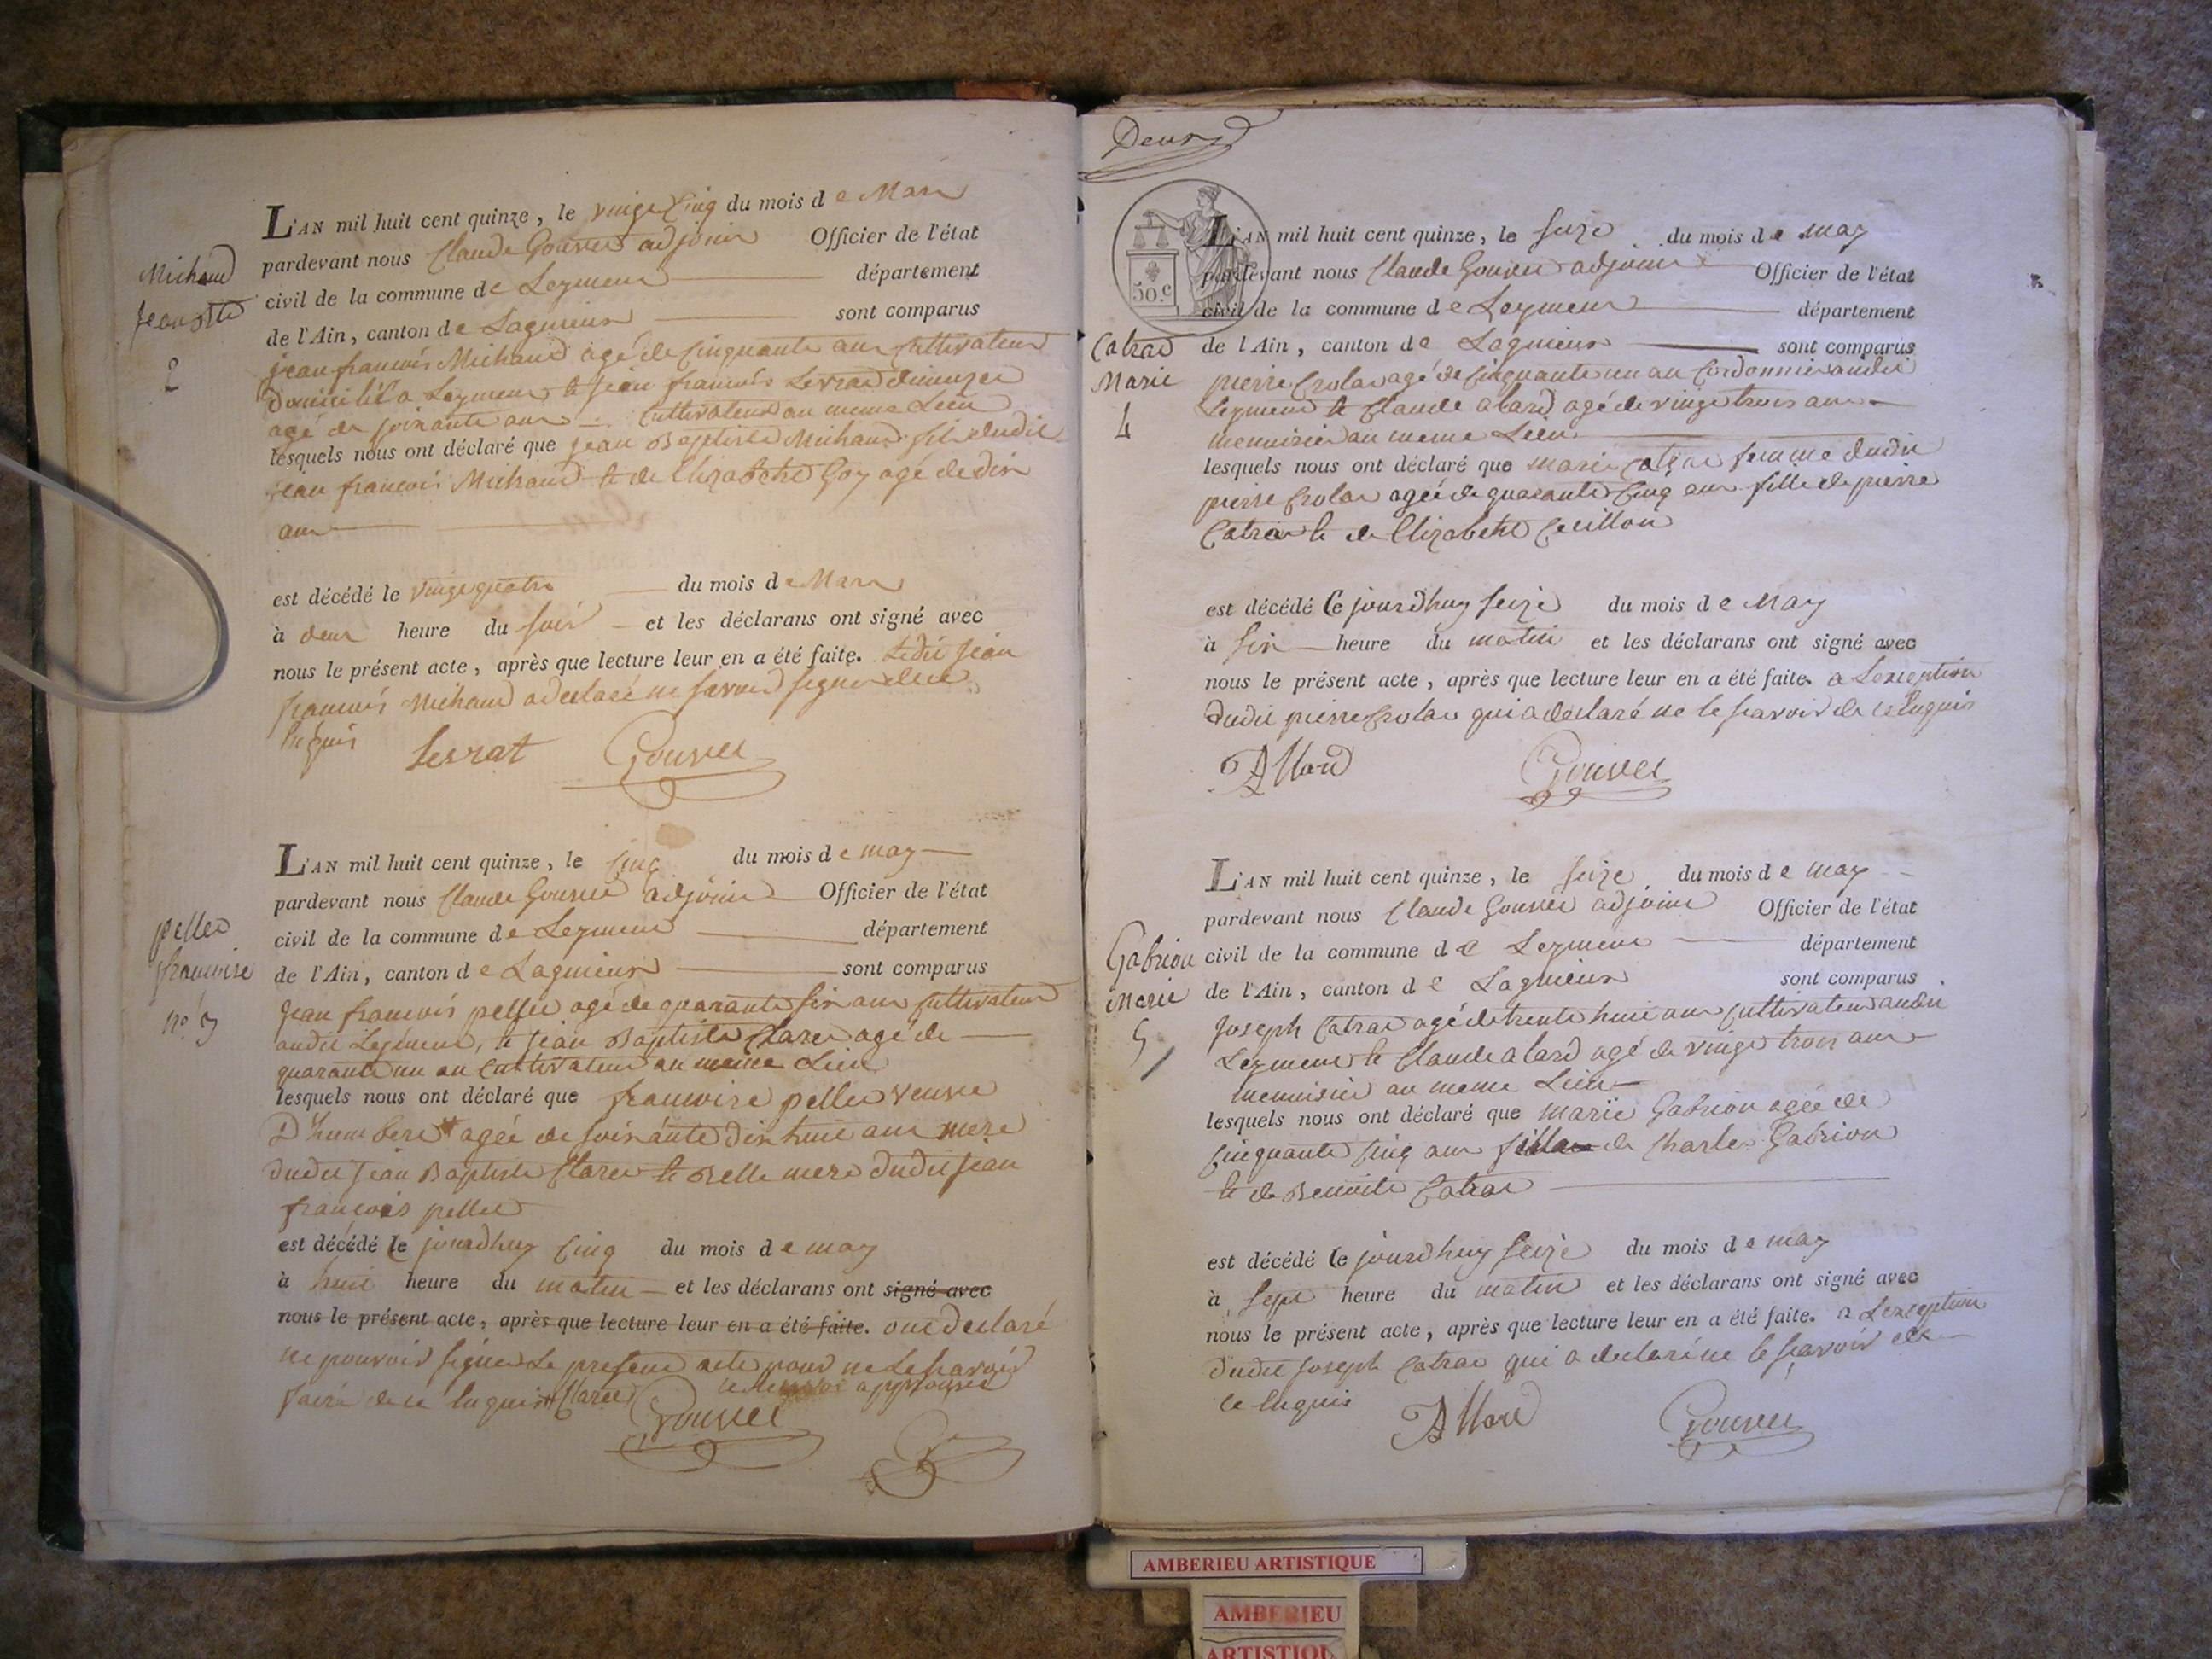 Michaud
Jean Bte
2
L'AN mil huit cent quinze, le vingt Cinq du mois de Mars
pardevant nous Claude Gouvet adjoint Officier de l'état
civil de la commune de Leyment département
de l'Ain, canton de Lagnieux sont comparus
jean françois Michaud agé de Cinquante ans Cultivateur
Domicilié a Leyment et jean françois Levrat
agé de soixante ans Cultivateur au meme Lieu
lesquels nous ont déclaré que jean Baptiste Michaud fils dudit
jean françois Michaud et de Elizabeth Goy agé de dix
ans
est décédé le vingt quatre du mois de Mars
à deux heure du soir et les déclarans ont signé avec
nous le présent acte, après que lecture leur en a été faite. Ledit jean
françois Michaud a declaré ne savoir signer de ce
Enquis Levrat Gouvet
pellet
françoise
no 3
L'AN mil huit cent quinze, le Cinq du mois de may
pardevant nous Claude Gouvet adjoint Officier de l'état
civil de la commune de Leyment département
de l'Ain, canton de Lagnieux sont comparus
jean françois pellet agé de quarante six ans Cultivateur
audit Leyment, et jean Baptiste Claret agé de
quarante un an Cultivateur au meme Lieu
lesquels nous ont déclaré que françoise pellet veuve
D'humbert agée de soixante dix huit ans mere
dudit jean Baptiste Claret et Belle mere dudit jean
françois pellet
est décédé le jourdhuy Cinq du mois de may
à huit heure du matin et les déclarans ont signé avec
nous le présent acte, après que lecture leur en a été faite. ont declaré
ne pouvoir signer Le present acte pour ne Le savoir
faire de ce Enquis Claret approuvé
Gouvet
Deux
50.c
Catrat
Marie
4
L'AN mil huit cent quinze, le seize du mois de may
pardevant nous Claude Gouvet adjoint Officier de l'état
civil de la commune de Leyment département
de l'Ain, canton de Lagnieux sont comparus
pierre Crolat agé de Cinquante un an Cordonnier audit
Leyment et Claude alard agé de vingt trois ans
menuisier au meme Lieu
lesquels nous ont déclaré que marie Catrat femme dudit
pierre Crolat agée de quarante Cinq ans fille de pierre
Catrat et de Elizabeth Cecillon
est décédé le jourdhuy seize du mois de May
à six heure du matin et les déclarans ont signé avec
nous le présent acte, après que lecture leur en a été faite. a Lexception
dudit pierre Crolat qui a declaré ne le savoir de ce Enquis
Allard Gouvet
Gabrion
Marie
5
L'AN mil huit cent quinze, le seize du mois de may
pardevant nous Claude Gouvet adjoint Officier de l'état
civil de la commune de Leyment département
de l'Ain, canton de Lagnieux sont comparus
Joseph Catrat agé de trente huit ans Cultivateur audit
Leyment et Claude alard agé de vingt trois ans
menuisier au meme Lieu
lesquels nous ont déclaré que marie Gabrion agée de
Cinquante Cinq ans fille de Charles Gabrion
et de Benoite Catrat
est décédé le jourdhuy seize du mois de may
à sept heure du matin et les déclarans ont signé avec
nous le présent acte, après que lecture leur en a été faite. a Lexception
dudit joseph Catrat qui a declaré ne le savoir de
ce Enquis Allard Gouvet
AMBERIEU ARTISTIQUE
AMBERIEU
ARTISTIQU